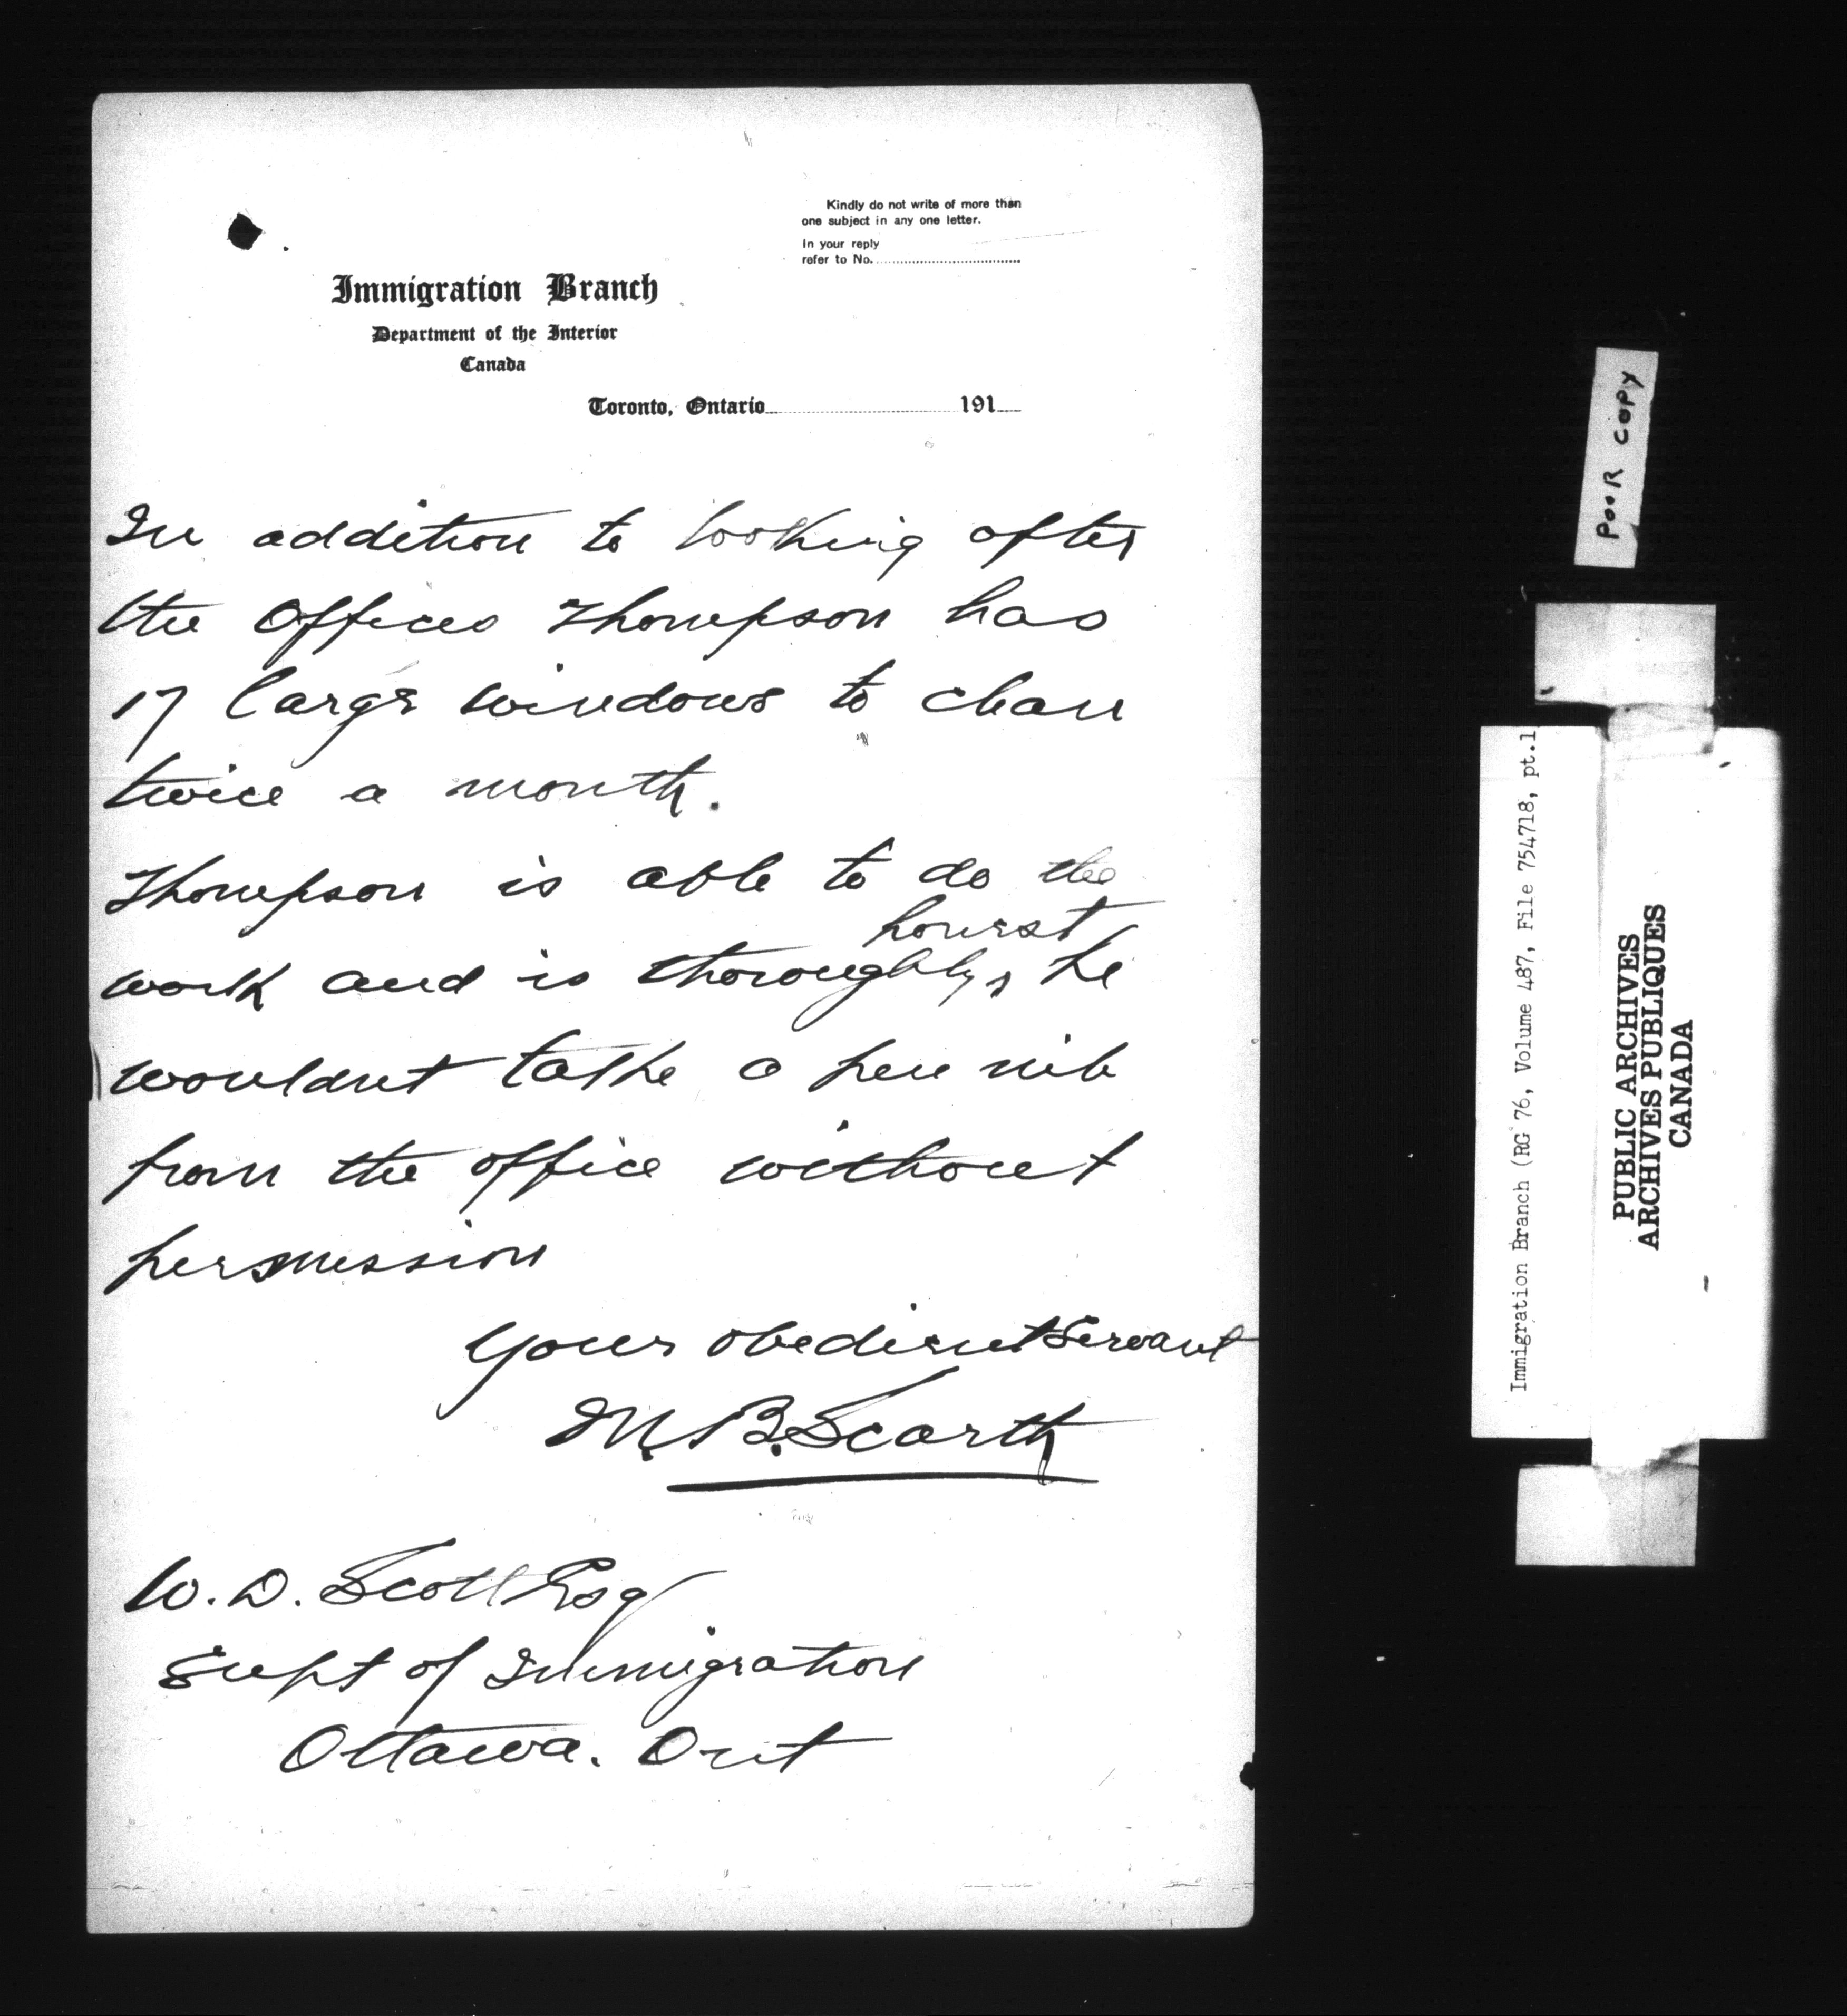 Kindly do not write of more than
one subject in any one letter.
In your reply
refer to No.
Immigration Branch
Department of the Interior
Canada
Toronto, Ontario 191
In addition to looking after
the Offices Thompson has
17 large windows to clean
twice a month.
Thompson is able to do the
honest
work and is thoroughly, he
wouldnt take a pen nib
from the office without
permission
Your obedient Servant
M.B. Scarth
W. D. Scott Esq
Supt of Immigration
Ottawa. Ont
POOR COPY
Immigration Branch (RG 76, Volume 487, File 754718, pt.1
PUBLIC ARCHIVES
ARCHIVES PUBLIQUES
CANADA